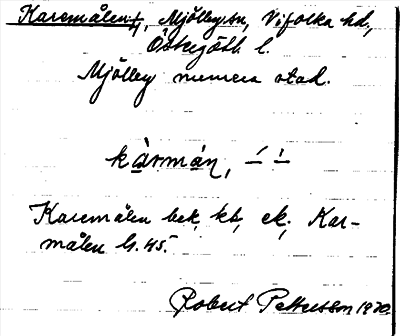 Karemålen 4, Mjölby sn, Vifolka hd,
Östergötl. l.
Mjölby numera stad.
kàrmán,
Karemålen bek, kb, ek, Kar-
målen ls. 45.
Robert Pettersson 1920.